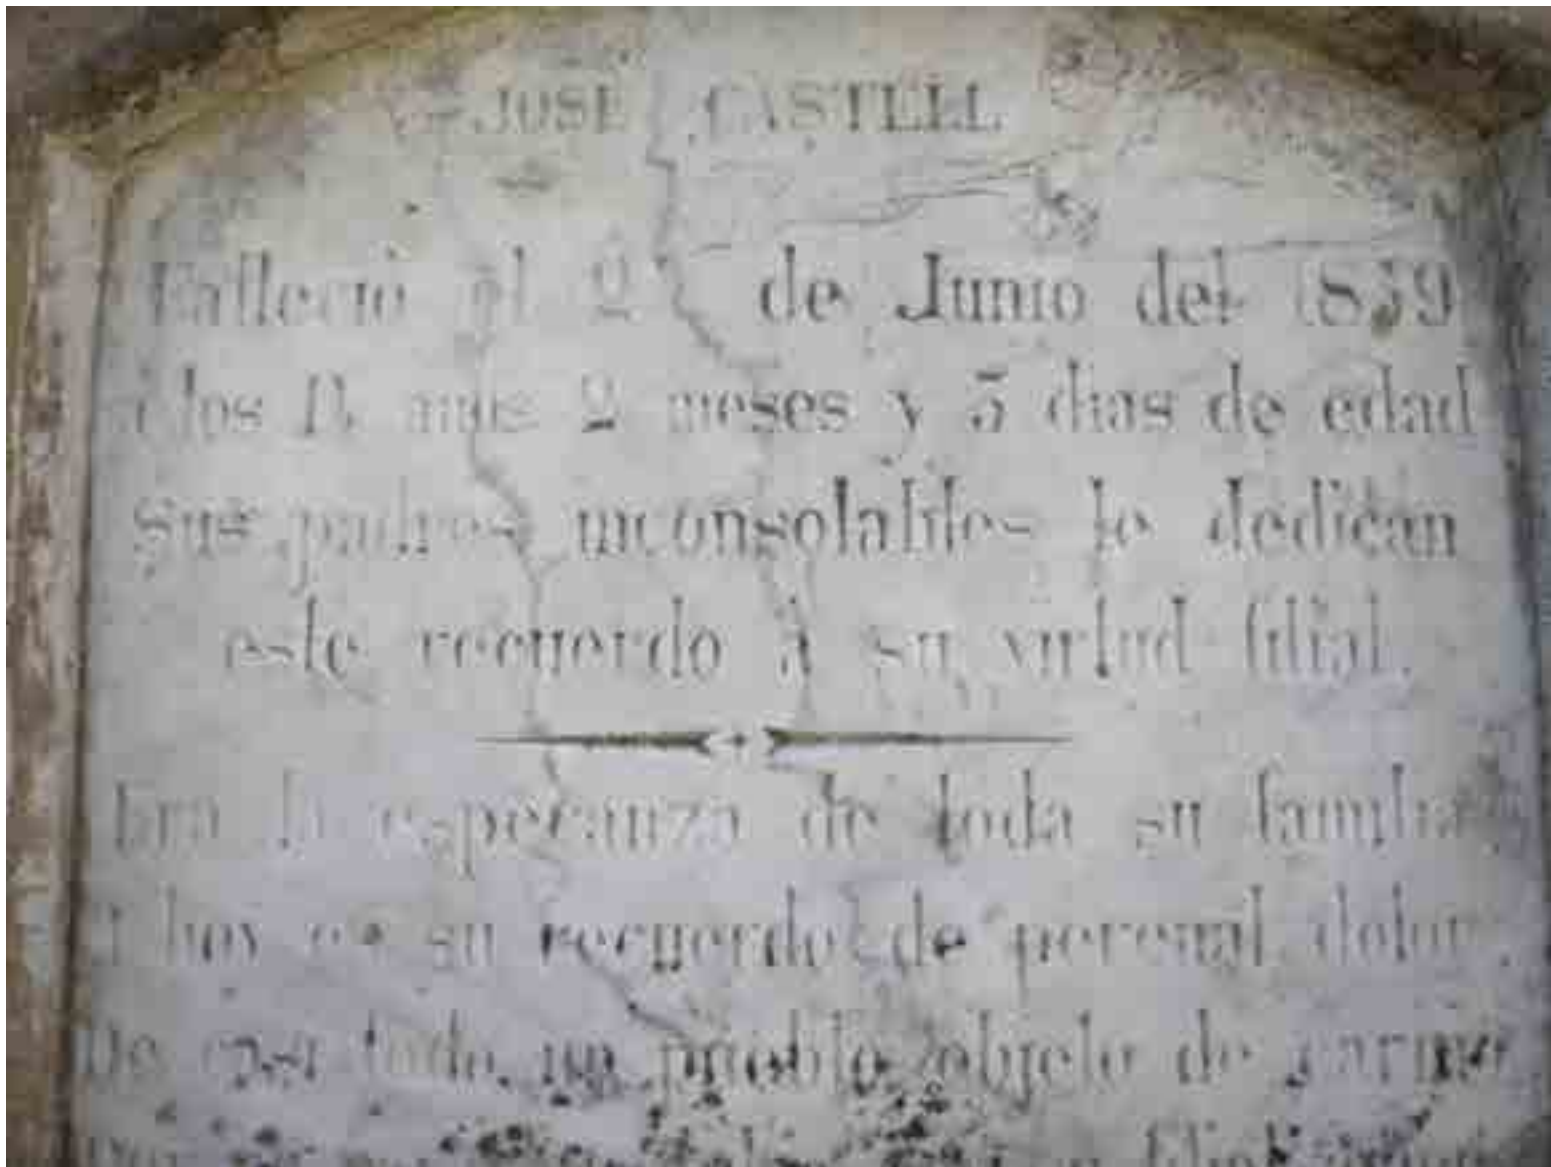 JOSÉ CASTELL
Falleció el 2 de Junio del 1859
á los años 2 meses y 5 dias de edad
sus padres inconsolables le dedican
este recuerdo á su virtud filial.
Era la esperanza de toda su familia
y hoy es su recuerdo de perenal dolor
De casi todo un pueblo objeto de cariño